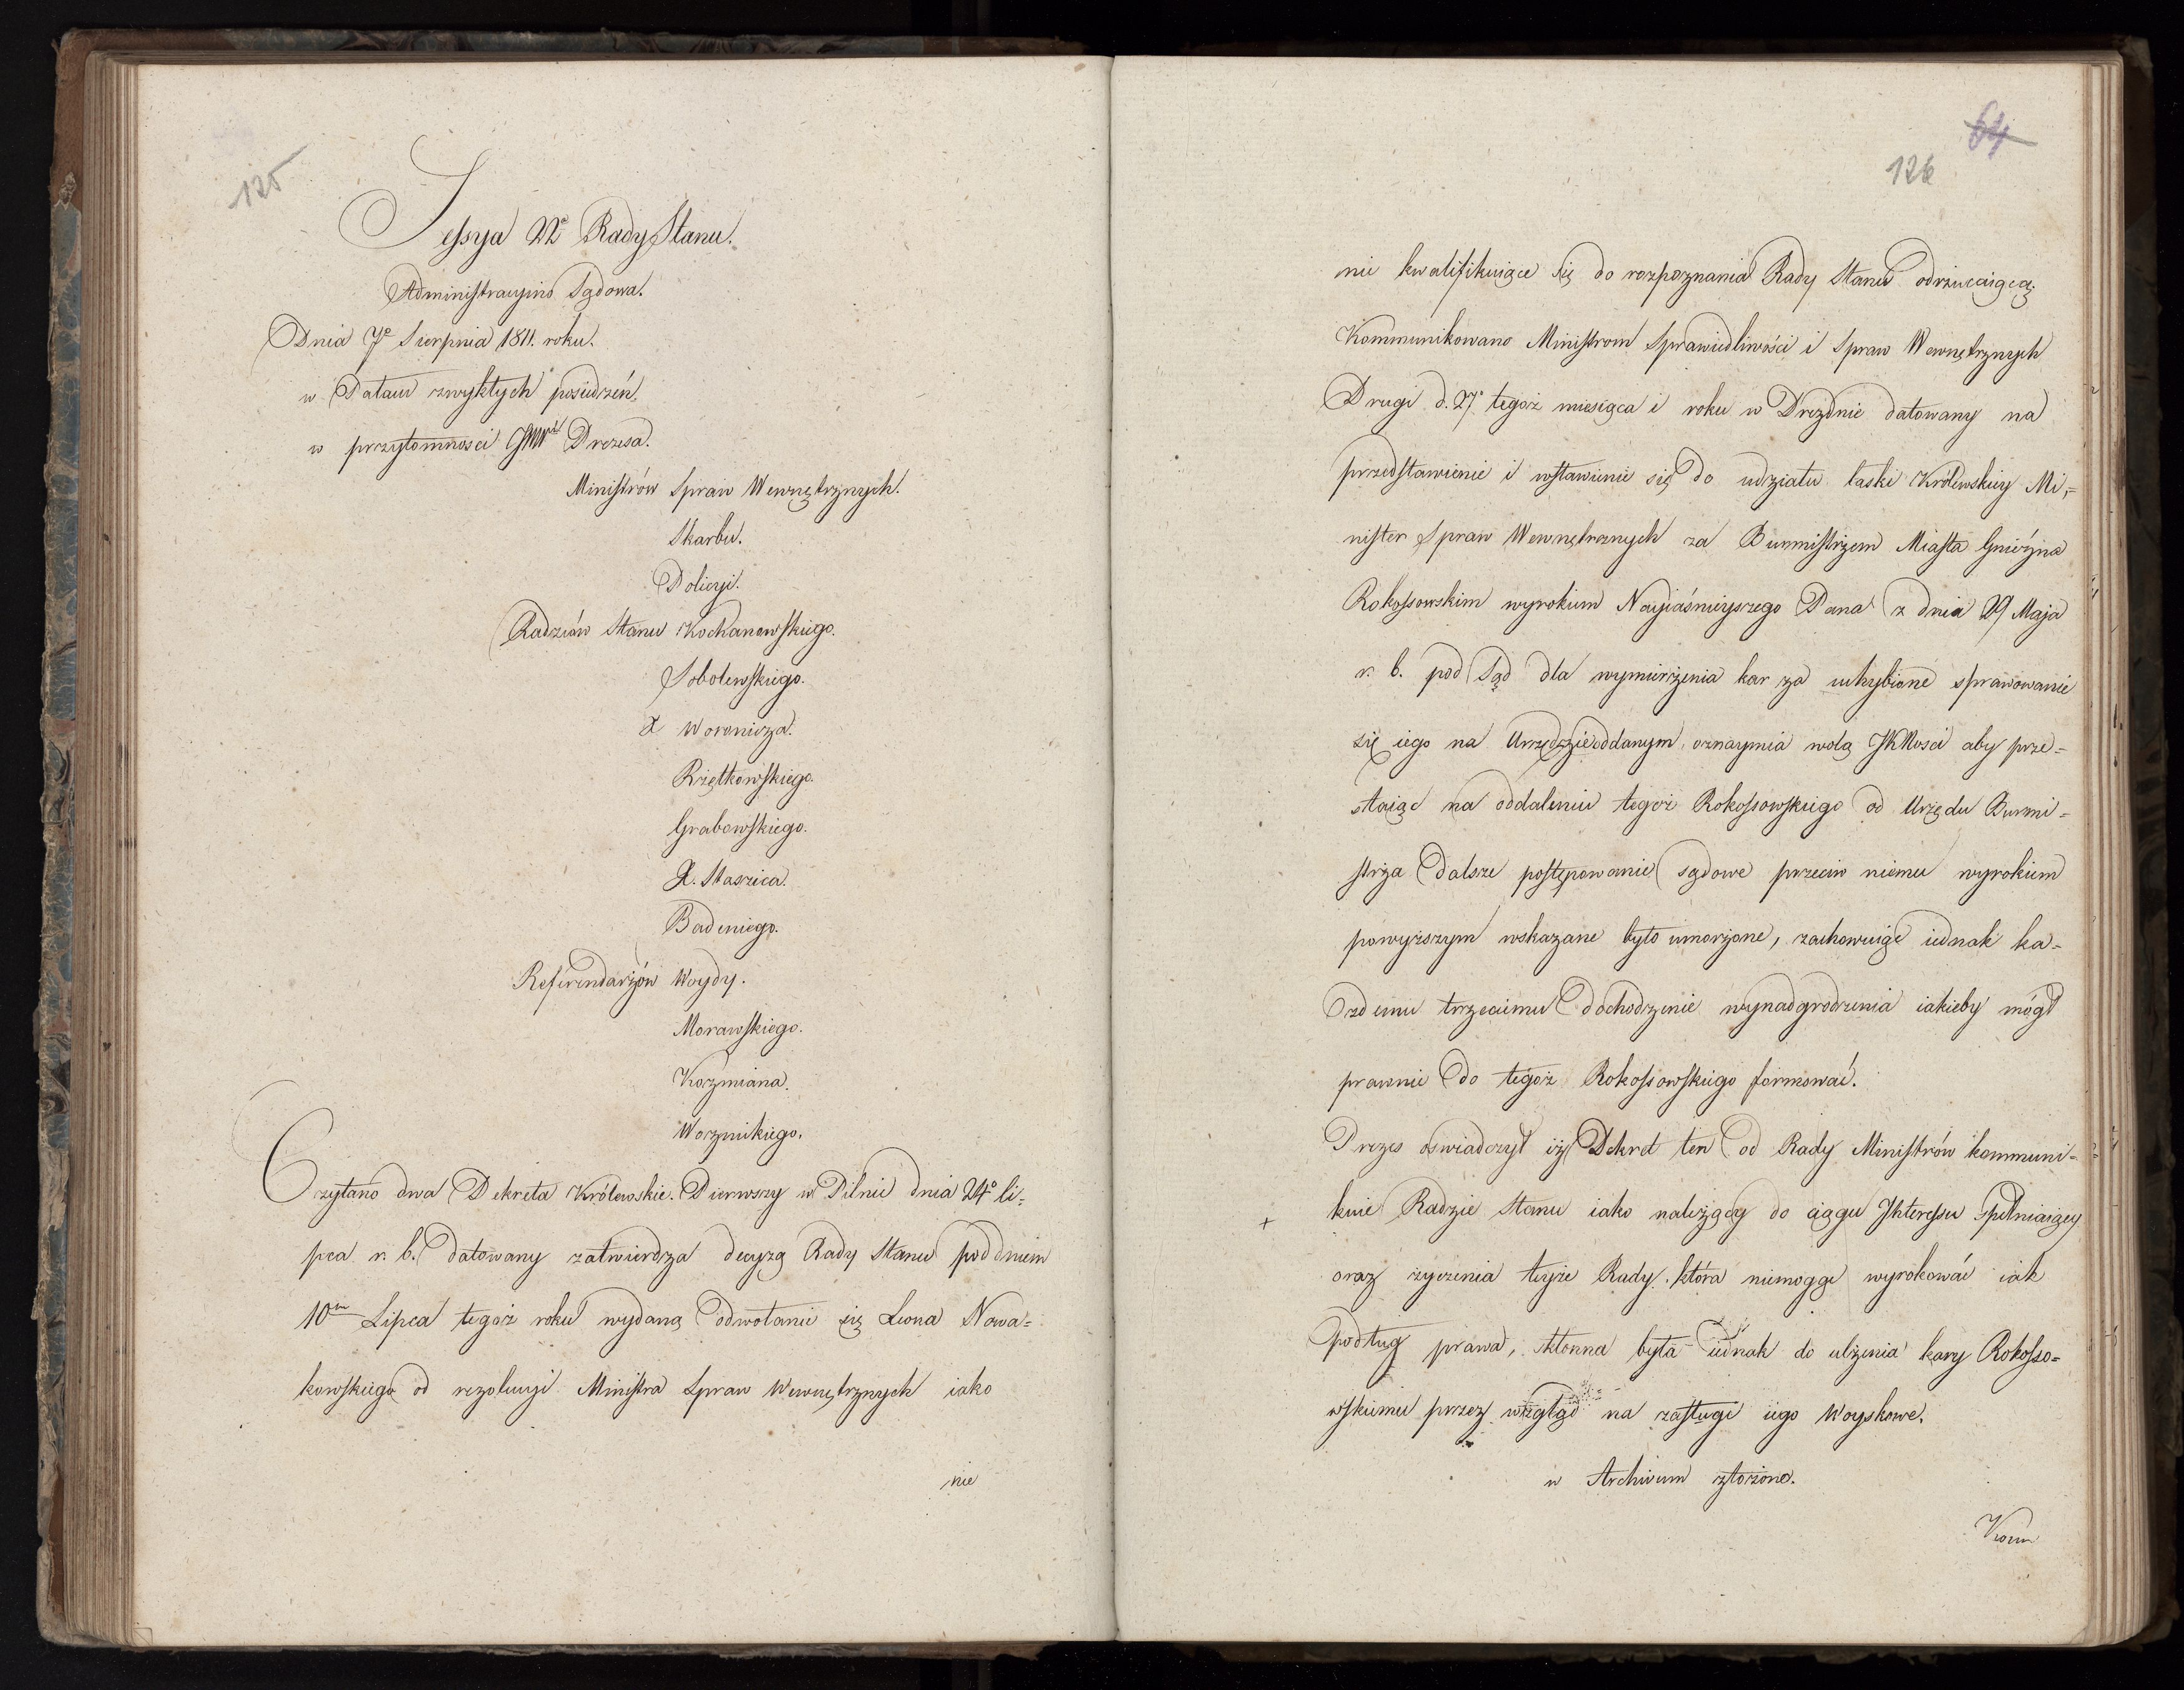 125
Sessya 22ª Rady Stanu.
Administracyino Sądowa.
Dnia 7º Sierpnia 1811. roku.
w Pałacu zwykłych posiedzeń,
w przytomności Prezesa.
Ministrów Spraw Wewnętrznych.
Skarbu.
Policyi.
Radzców Stanu Kochanowskiego.
Sobolewskiego.
X Woronicza.
Rzętkowskiego.
Grabowskiego.
X. Staszica.
Badeniego.
Referendarzów Woydy.
Morawskiego.
Kozmiana.
Worzynikiego.
Czytano dwa Dekreta Królewskie. Pierwszy w Pilnic dnia 24º li-
pca r. b. datowany zatwierdza decyzą Rady Stanu pod dniem
10m Lipca tegoż roku wydaną odwołanie się Leona Nowa=
kowskiego od rezolucyi Ministra Spraw Wewnętrznych iako
nie
64
126
nie kwalifikuiące się do rozpoznania Rady Stanu odrzucaiącą
Kommunikowano Ministrom Sprawiedliwości i Spraw Wewnętrznych
Drugi d. 27º tegoż miesiąca i roku w Dreznie datowany na
przedstawienie i wstawienie się do udziału łaski Królewskiey Mi-
nister Spraw Wewnętrznych za Burmistrzem Miasta Gniezna
Rokossowskim wyrokiem Nayiaśnieyszego Pana z dnia 29 Maja
r. b. pod Sąd dla wymierzenia kar za uchybione sprawowanie
się iego na Urzędzie oddanym, oznaymia wolą JKMości aby prze=
staiąc na oddaleniu tegoż Rokossowskiego od Urzędu Burmi=
strza dalsze postępowanie sądowe przeciw niemu wyrokiem
powyższym wskazane było umorzone, zachowuiąc iednak ka=
żdemu trzeciemu dochodzenie wynadgrodzenia iakieby mógł
prawnie do tegoż Rokossowskiego formować.
Prezes oświadczył iż Dekret ten od Rady Ministrów kommuni=
kuie Radzie Stanu iako należący do ciągu Interessu Spełniaiący
oraz życzenia teyże Rady, która niemogąc wyrokować iak
podług prawa, skłonna była iednak do ulżenia kary Rokosso=
wskiemu przez wzgląd na zasługi iego Woyskowe.
w Archivum złożono.
Kom